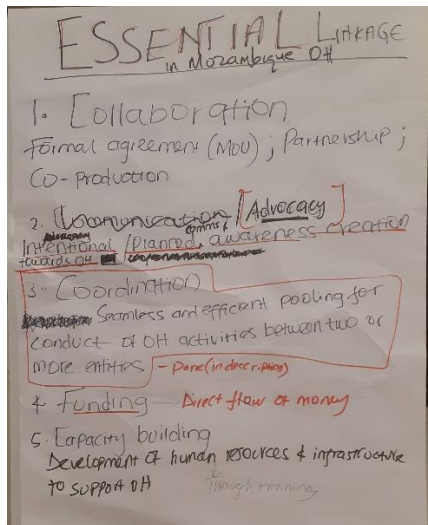 ESSENTIAL LINKAGE
in MOZAMBIQUE OH
1. Collaboration
Formal agreement (MOU) ; Partnership ;
Co-production
2. Communication comms & [Advocacy]
Intentional /Planned, awareness creation
towards OH
3. Coordination
Seamless and efficient pooling for
conduct of OH activities between two or
more entities - Done (in description)
4 Funding - Direct flow of money
5. Capacity building
Development of human resources & infrastructure
to support OH through training